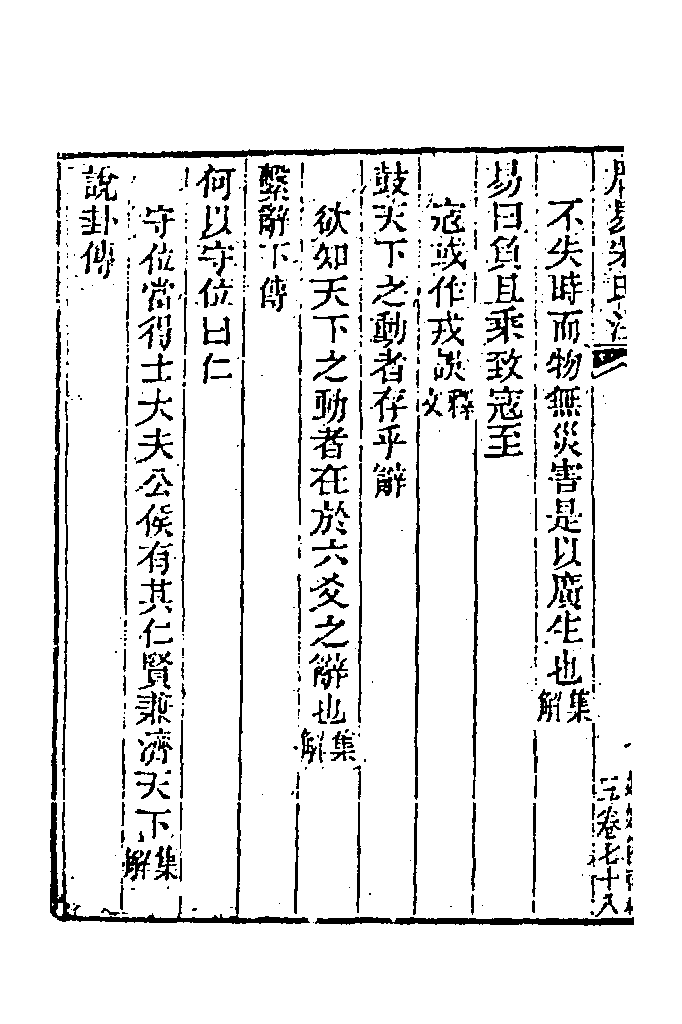 周易宋氏注
不失時而物無災害是以廣生也集解
易曰負且乘致寇至
寇或作戎誤釋文
鼓天下之動者存乎辭
欲知天下之動者在於六爻之辭也集解
繫辭下傳
何以守位曰仁
守位當得士大夫公侯有其仁賢兼濟天下集解
說卦傳
卷七十八